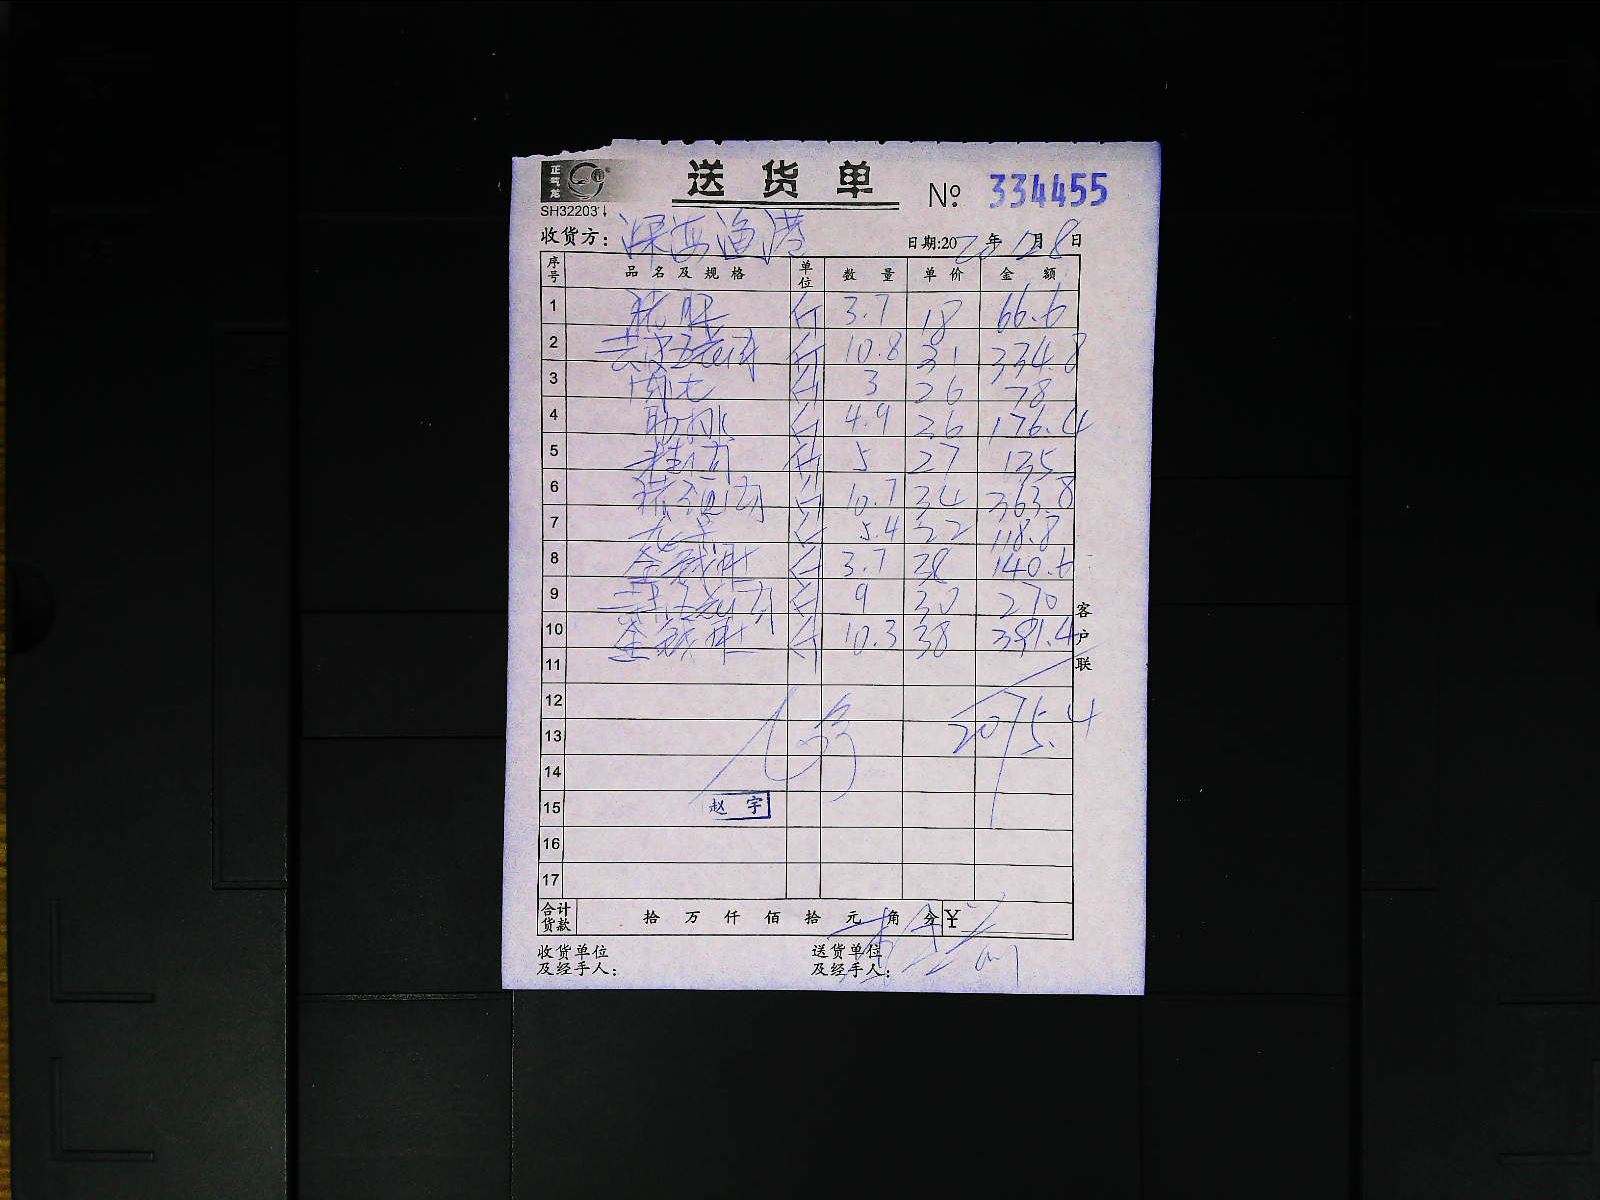 正气龙
送货单 № 334455
SH32203
收货方: 深海渔港 日期:2020年12月8日
序号 品名及规格 单位 数量 单价 金额
1 猪肝 斤 3.7 18 66.6
2 去皮五花肉 斤 10.8 31 334.8
3 斤 3 26 78
4 肋排 斤 4.9 36 176.4
5 斤 5 27 135
6 斤 10.7 34 363.8
7 斤 5.4 22 118.8
8 金钱肚 斤 3.7 38 140.6
9 五花肉 斤 9 30 270
10 金钱肚 斤 10.3 38 391.4
11
12
13 2075.4
14
15 赵宇
16
17
客户联
合计货款 拾 万 仟 佰 拾 元 角 分 ¥
收货单位及经手人:
送货单位及经手人: